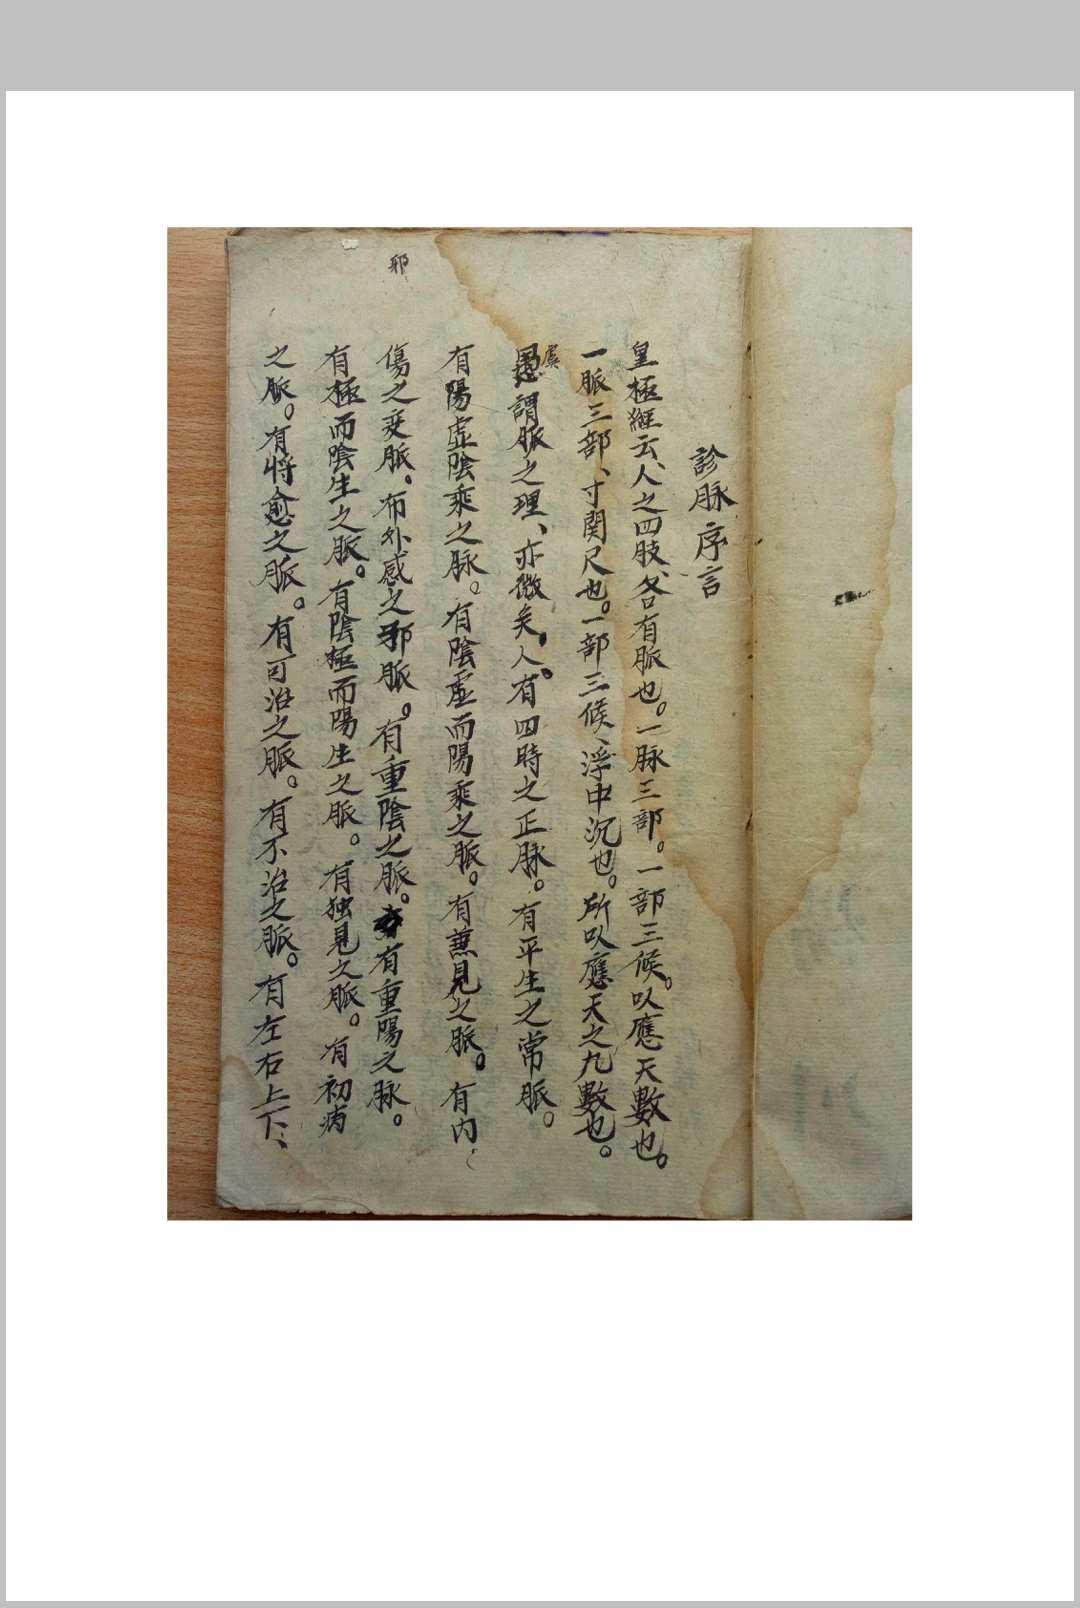 診脈序言
皇極經云、人之四肢、各有脈也。一脉三部。一部三候。以應天數也。
一脈三部、寸関尺也。一部三候、浮中沉也。所以應天之九數也。
愚謂脈之理、亦微矣。人有四時之正脉。有平生之常脈。
有陽虛陰乘之脉。有陰虛而陽乘之脈。有兼見之脈。有内
傷之変脈。布外感之邪脈。有重陰之脈。有重陽之脉。
邪
有極而陰生之脈。有陰極而陽生之脈。有独見之脈。有初病
之脈。有将愈之脈。有可治之脈。有不治之脈。有左右上下、